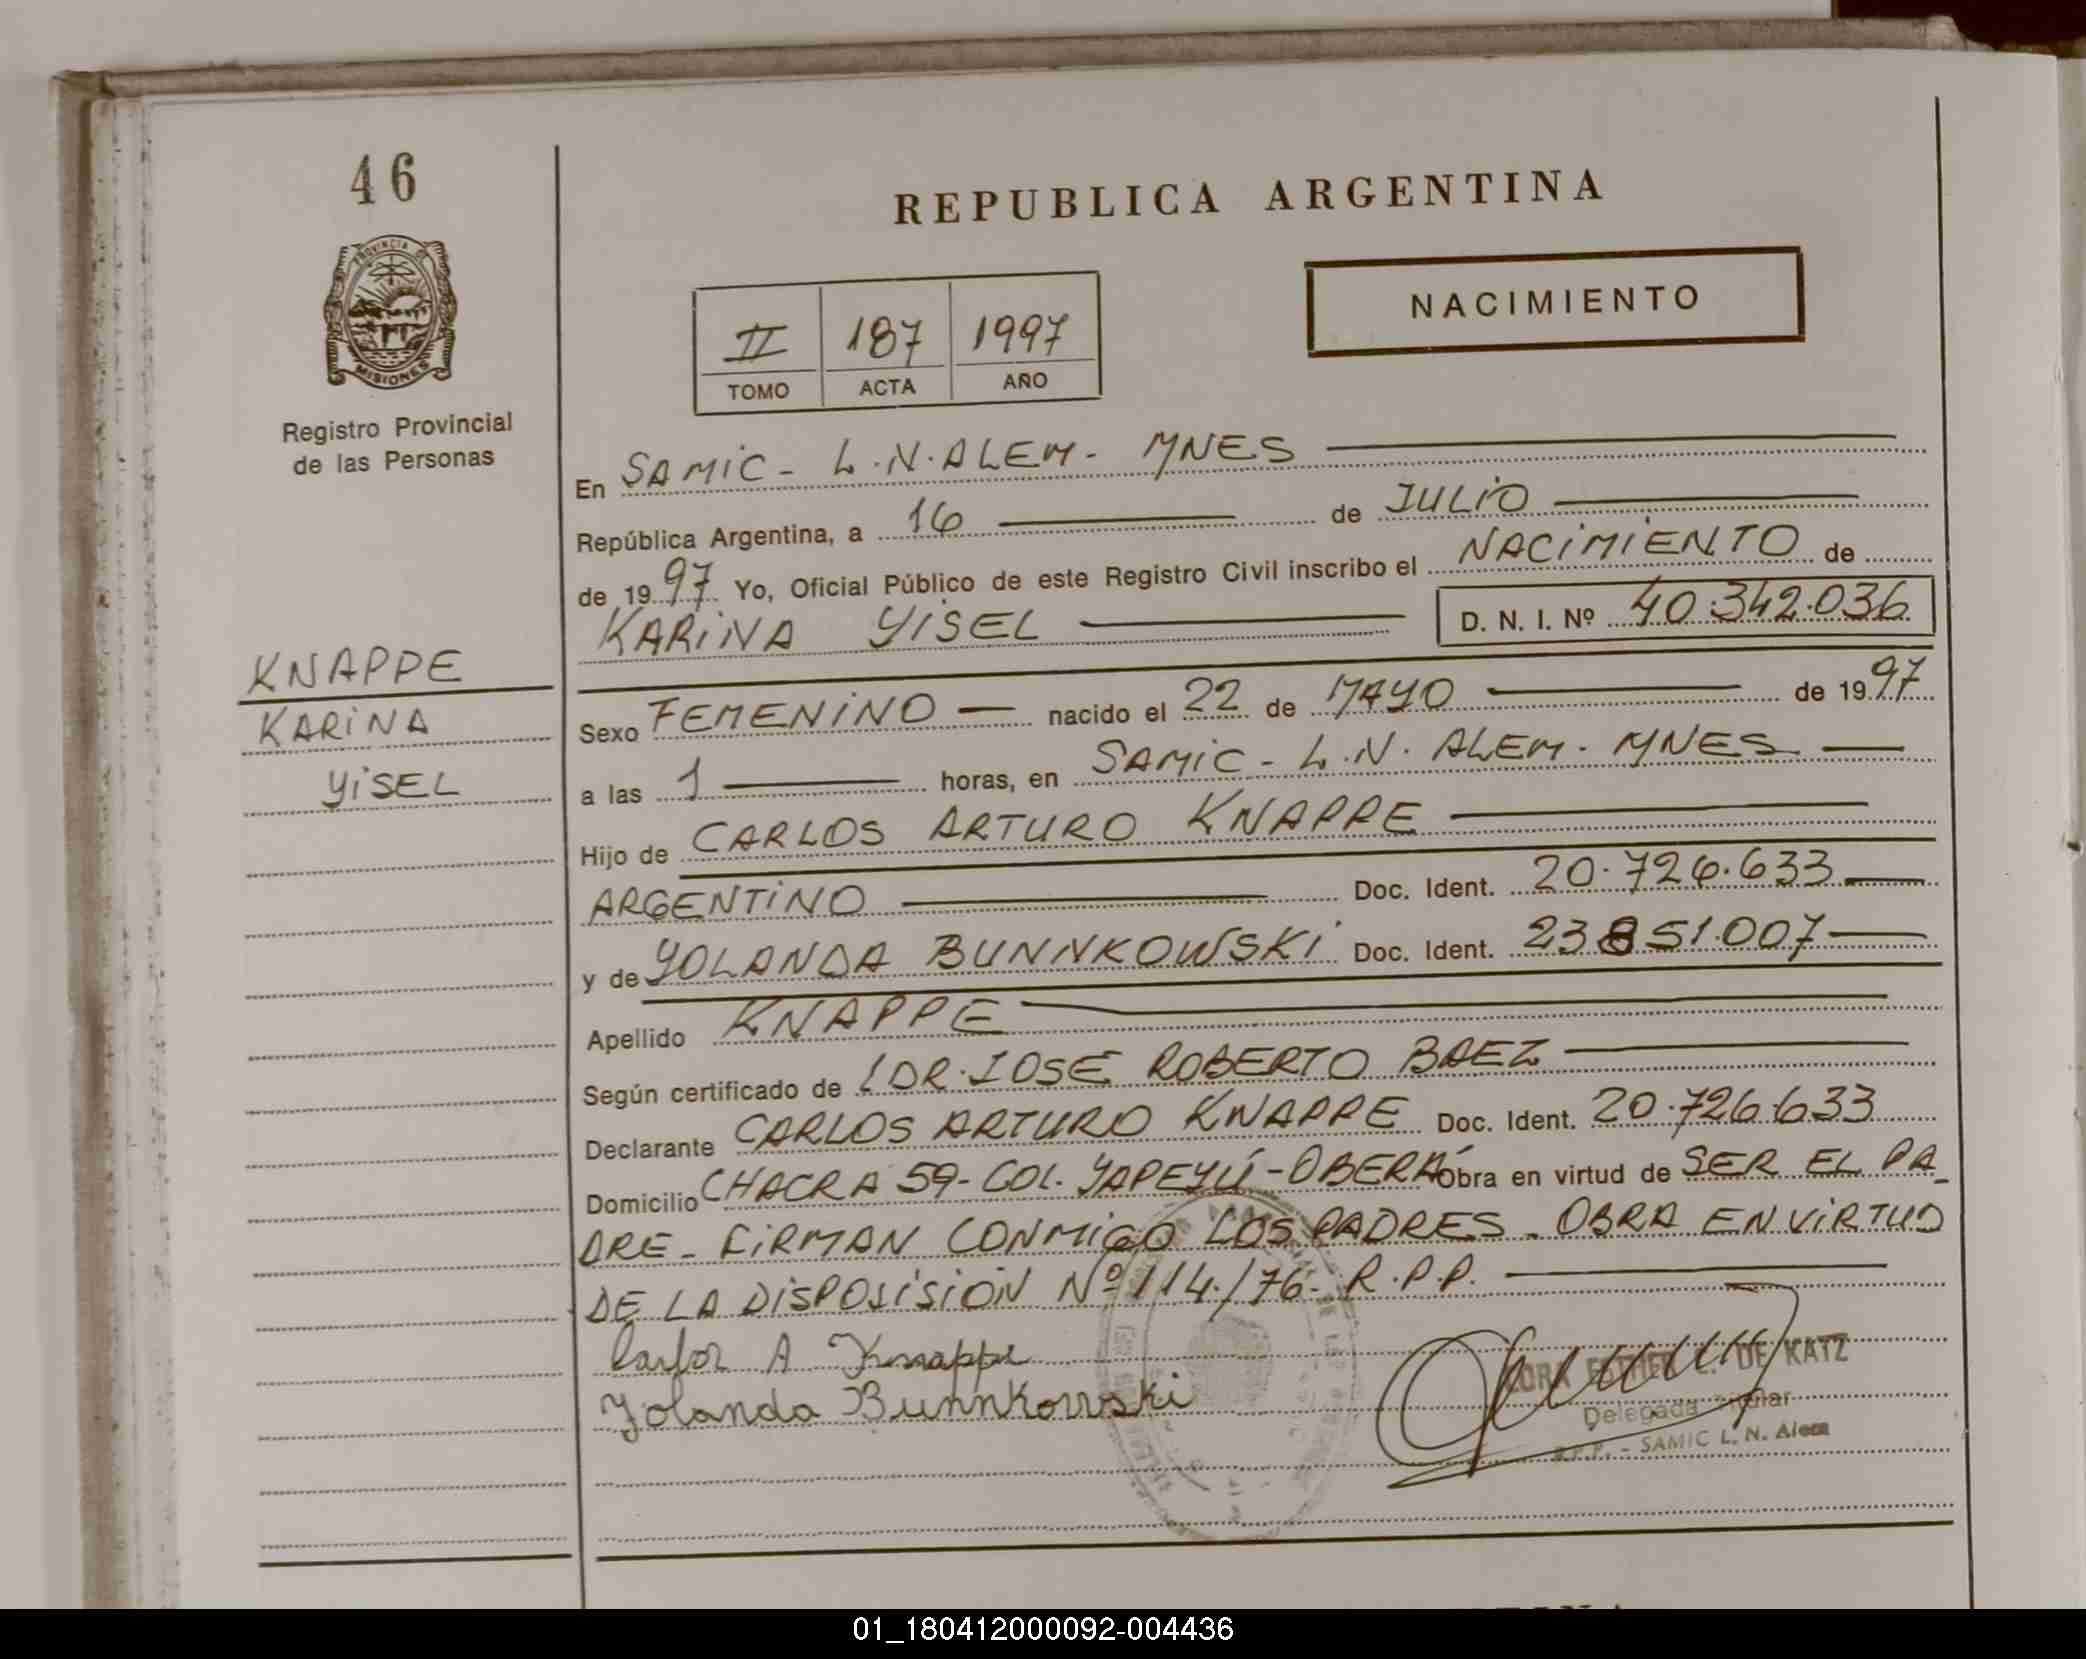 46
REPUBLICA ARGENTINA
PROVINCIA DE
MISIONES
Registro Provincial
de las Personas
NACIMIENTO
II 187 1997
TOMO ACTA AÑO
En SAMIC - L.N. ALEM - MNES
República Argentina, a 16 de JULIO
de 1997 Yo, Oficial Público de este Registro Civil inscribo el NACIMIENTO de
KARINA YISEL D. N. I. Nº 40.342.036
KNAPPE
KARINA
YISEL
Sexo FEMENINO nacido el 22 de MAYO de 1997
a las 1 horas, en SAMIC - L.N. ALEM - MNES
Hijo de CARLOS ARTURO KNAPPE
ARGENTINO Doc. Ident. 20.726.633
y de YOLANDA BUNNKOWSKI Doc. Ident. 23851.007
Apellido KNAPPE
Según certificado de DR. JOSE ROBERTO BAEZ
Declarante CARLOS ARTURO KNAPPE Doc. Ident. 20.726.633
Domicilio CHACRA 59 - COL. YAPEYÚ - OBERÁ Obra en virtud de SER EL PA-
DRE - FIRMAN CONMIGO LOS PADRES - OBRA EN VIRTUD
DE LA DISPOSISION Nº 114/76 - R.P.P.
Carlos A Knappe
Yolanda Bunnkowski
ESTHER DE KATZ
Delegada Titular
R.P.P. - SAMIC L. N. Alem
01_180412000092-004436